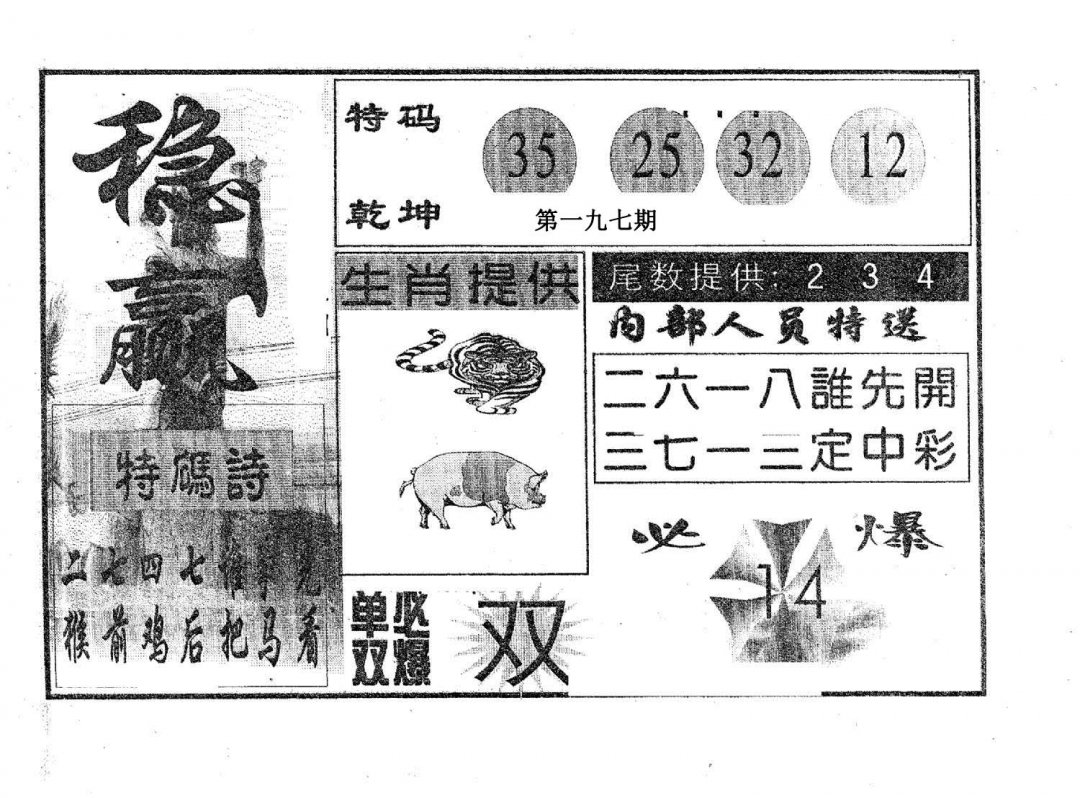 稳赢
特碼詩
二七四七
猴前鸡后把马看
特码
乾坤
35 25 32 12
第一九七期
生肖提供
单双必爆
双
尾数提供: 2 3 4
内部人员特送
二六一八誰先開
三七一三定中彩
必爆
14